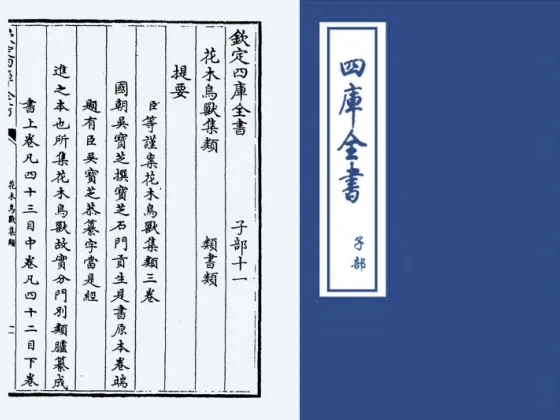 欽定四庫全書 子部十一
花木鳥獸集類 類書類
提要
臣等謹案花木鳥獸集類三卷
國朝吳寶芝撰寶芝石門貢生是書原本卷端
題有臣吳寶芝恭纂字當是經
進之本也所集花木鳥獸故實分門別類臚纂成
書上卷凡四十三目中卷凡四十二目下卷
花木鳥獸集類
四庫全書
子部